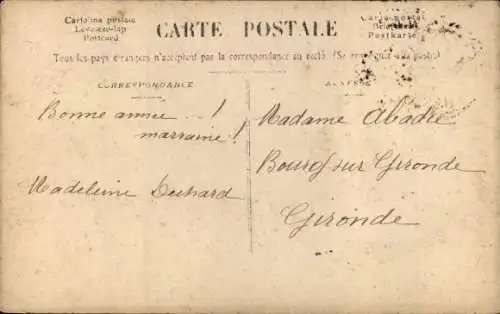 Cartolina postale
Levelező-lap
Postcard
CARTE POSTALE
Carta postal
Postkarte
Tous les pays étrangers n'acceptent pas la correspondance au recto. (Se renseigner à la poste)
CORRESPONDANCE
Bonne année - !
marraine !
Madeleine
Madame Abadie
Bourg sur Gironde
Gironde